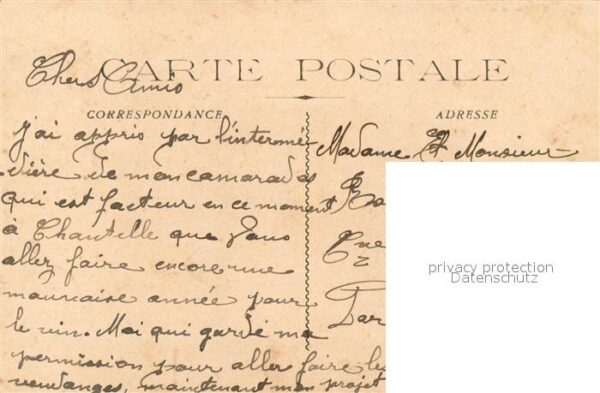 CARTE POSTALE
Chers Amis
CORRESPONDANCE
ADRESSE
j'ai appris par l'intermé-
dière de mon camarades
qui est facteur en ce moment
à Chantelle que vous
allez faire encore une
mauvaise année pour
le vin. Moi qui gardé ma
permission pour aller faire les
vendanges, maintenant mon projet
Madame Et Monsieur
privacy protection
Datenschutz